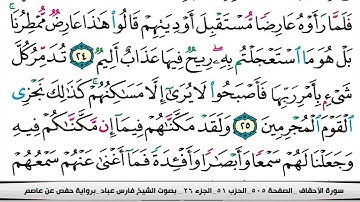 فَلَمَّا رَأَوْهُ عَارِضًا مُّسْتَقْبِلَ أَوْدِيَتِهِمْ قَالُوا۟ هَٰذَا عَارِضٌ مُّمْطِرُنَا ۚ
بَلْ هُوَ مَا ٱسْتَعْجَلْتُم بِهِۦ ۖ رِيحٌ فِيهَا عَذَابٌ أَلِيمٌ ٢٤ تُدَمِّرُ كُلَّ
شَىْءٍۭ بِأَمْرِ رَبِّهَا فَأَصْبَحُوا۟ لَا يُرَىٰٓ إِلَّا مَسَٰكِنُهُمْ ۚ كَذَٰلِكَ نَجْزِى
ٱلْقَوْمَ ٱلْمُجْرِمِينَ ٢٥ وَلَقَدْ مَكَّنَّٰهُمْ فِيمَآ إِن مَّكَّنَّٰكُمْ فِيهِ
وَجَعَلْنَا لَهُمْ سَمْعًا وَأَبْصَٰرًا وَأَفْـِٔدَةً فَمَآ أَغْنَىٰ عَنْهُمْ سَمْعُهُمْ
سورة الأحقاف _ الصفحة ٥٠٥ _ الحزب ٥١ _ الجزء ٢٦ _ بصوت الشيخ فارس عباد _ برواية حفص عن عاصم